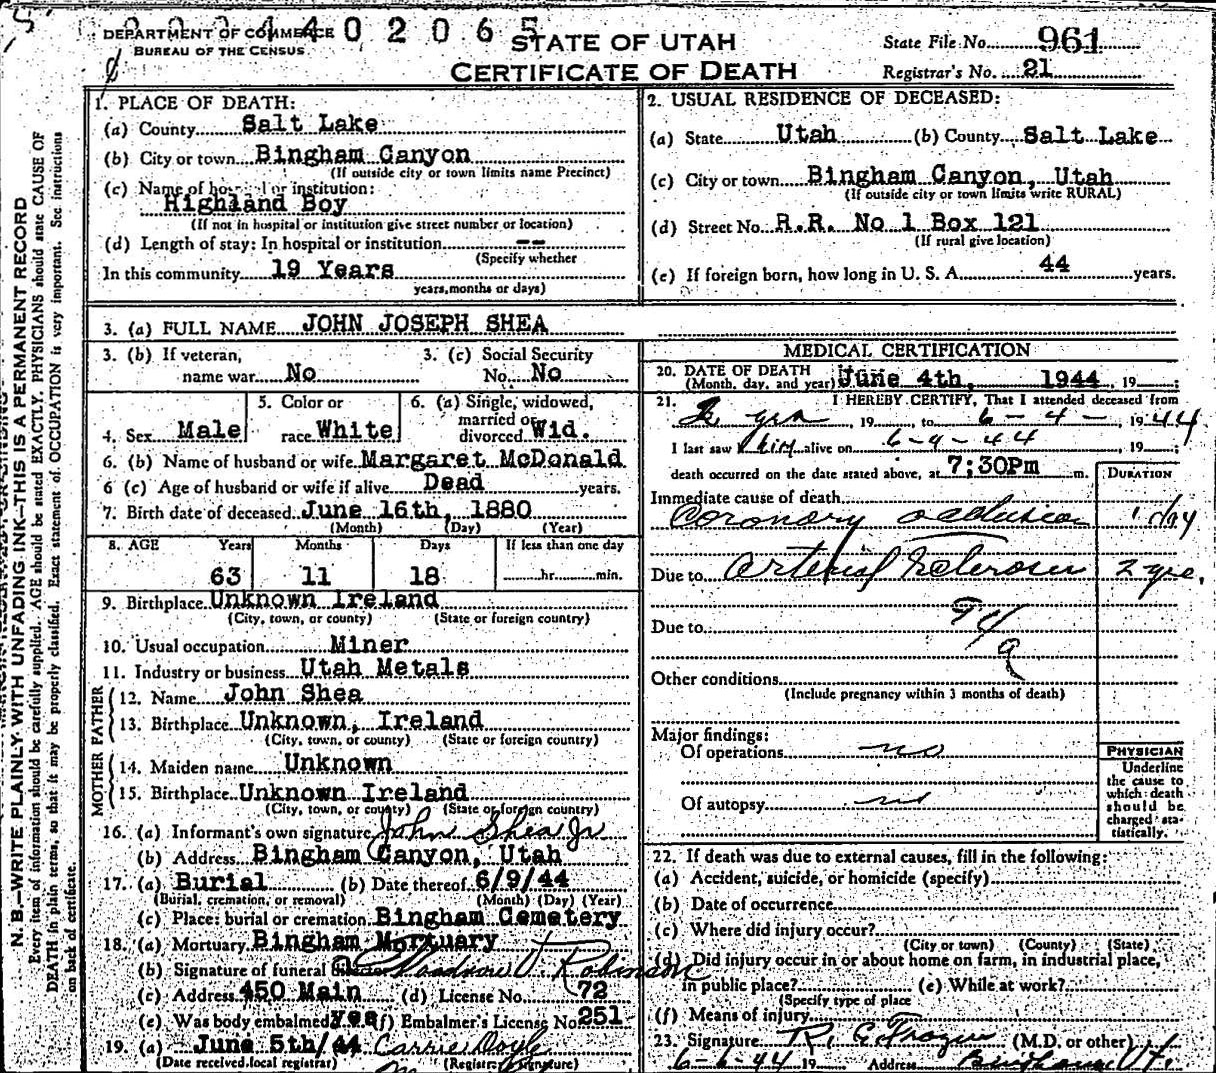 DEPARTMENT OF COMMERCE
BUREAU OF THE CENSUS
STATE OF UTAH
CERTIFICATE OF DEATH
State File No. 961
Registrar's No. 21
1. PLACE OF DEATH:
(a) County Salt Lake
(b) City or town Bingham Canyon
(If outside city or town limits name Precinct)
(c) Name of hospital or institution:
Highland Boy
(If not in hospital or institution give street number or location)
(d) Length of stay: In hospital or institution --
(Specify whether
In this community 19 Years
years, months or days)
2. USUAL RESIDENCE OF DECEASED:
(a) State Utah (b) County Salt Lake
(c) City or town Bingham Canyon, Utah
(If outside city or town limits write RURAL)
(d) Street No. R.R. No 1 Box 121
(If rural give location)
(e) If foreign born, how long in U. S. A. 44 years.
3. (a) FULL NAME JOHN JOSEPH SHEA
3. (b) If veteran, name war No
3. (c) Social Security No. No
4. Sex Male
5. Color or race White
6. (a) Single, widowed, married or divorced Wid.
6. (b) Name of husband or wife Margaret McDonald
6 (c) Age of husband or wife if alive Dead years.
7. Birth date of deceased June 16th, 1880
(Month) (Day) (Year)
8. AGE Years Months Days If less than one day
63 11 18 hr. min.
9. Birthplace Unknown Ireland
(City, town, or county) (State or foreign country)
10. Usual occupation Miner
11. Industry or business Utah Metals
FATHER
12. Name John Shea
13. Birthplace Unknown, Ireland
(City, town, or county) (State or foreign country)
MOTHER
14. Maiden name Unknown
15. Birthplace Unknown Ireland
(City, town, or county) (State or foreign country)
16. (a) Informant's own signature John Shea Jr
(b) Address Bingham Canyon, Utah
17. (a) Burial (b) Date thereof 6/9/44
(Burial, cremation, or removal) (Month) (Day) (Year)
(c) Place: burial or cremation Bingham Cemetery
18. (a) Mortuary Bingham Mortuary
(b) Signature of funeral director Woodrow V. Robinson
(c) Address 450 Main (d) License No. 72
(e) Was body embalmed yes (f) Embalmer's License No 251
19. (a) June 5th/44 Carrie Doyle
(Date received local registrar) (Registrar's signature)
MEDICAL CERTIFICATION
20. DATE OF DEATH
(Month, day, and year) June 4th, 1944, 19 ;
21. I HEREBY CERTIFY, That I attended deceased from
yrs, 19 , to 6-4-, 1944
I last saw him alive on 6-4-44, 19 ;
death occurred on the date stated above, at 7;30Pm m.
DURATION
Immediate cause of death
Coronary occlusion 1 day
Due to Arterial Sclerosis 2 yrs.
Due to 94
a
Other conditions
(Include pregnancy within 3 months of death)
Major findings:
Of operations no
Of autopsy no
PHYSICIAN
Underline
the cause to
which death
should be
charged sta-
tistically.
22. If death was due to external causes, fill in the following:
(a) Accident, suicide, or homicide (specify)
(b) Date of occurrence
(c) Where did injury occur?
(City or town) (County) (State)
(d) Did injury occur in or about home on farm, in industrial place,
in public place? (e) While at work?
(Specify type of place
(f) Means of injury
23. Signature R. E. Frazier (M.D. or other)
6-6-44 19 Address Bingham Ut.
N. B.—WRITE PLAINLY WITH UNFADING INK—THIS IS A PERMANENT RECORD
Every item of information should be carefully supplied. AGE should be stated EXACTLY. PHYSICIANS should state CAUSE OF
DEATH in plain terms, so that it may be properly classified. Exact statement of OCCUPATION is very important. See instructions
on back of certificate.